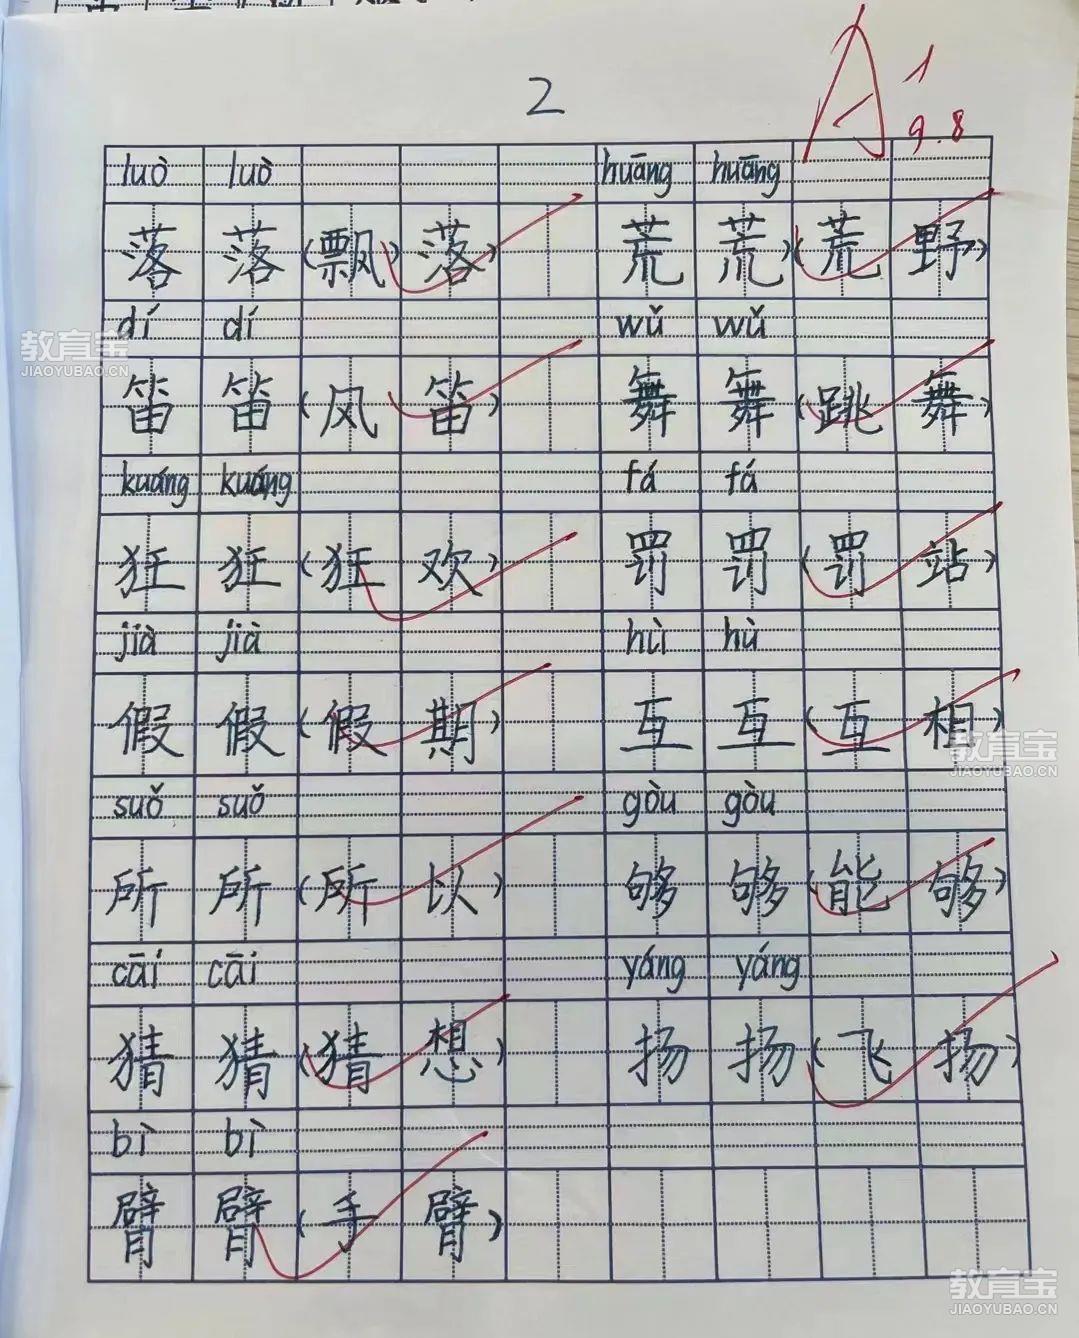 2
A 1
9.8
luò luò huāng huāng
落 落 (飘 落) 荒 荒 (荒 野)
dí dí wǔ wǔ
笛 笛 (风 笛) 舞 舞 (跳 舞)
kuáng kuáng fá fá
狂 狂 (狂 欢) 罚 罚 (罚 站)
jià jià hù hù
假 假 (假 期) 互 互 (互 相)
suǒ suǒ gòu gòu
所 所 (所 以) 够 够 (能 够)
cāi cāi yáng yáng
猜 猜 (猜 想) 扬 扬 (飞 扬)
bì bì
臂 臂 (手 臂)
教育宝
JIAOYUBAO.CN
教育宝
JIAOYUBAO.CN
教育宝
JIAOYUBAO.CN